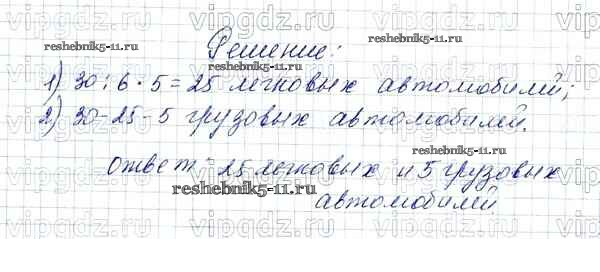 Решение:
1) 30 : 6 · 5 = 25 легковых автомобилей;
2) 30 - 25 - 5 грузовых автомобилей.
ответ: 25 легковых и 5 грузовых
автомобилей
vipgdz.ru vipgdz.ru vipgdz.ru vipgdz.ru
reshebnik5-11.ru reshebnik5-11.ru
reshebnik5-11.ru
reshebnik5-11.ru reshebnik5-11.ru
reshebnik5-11.ru